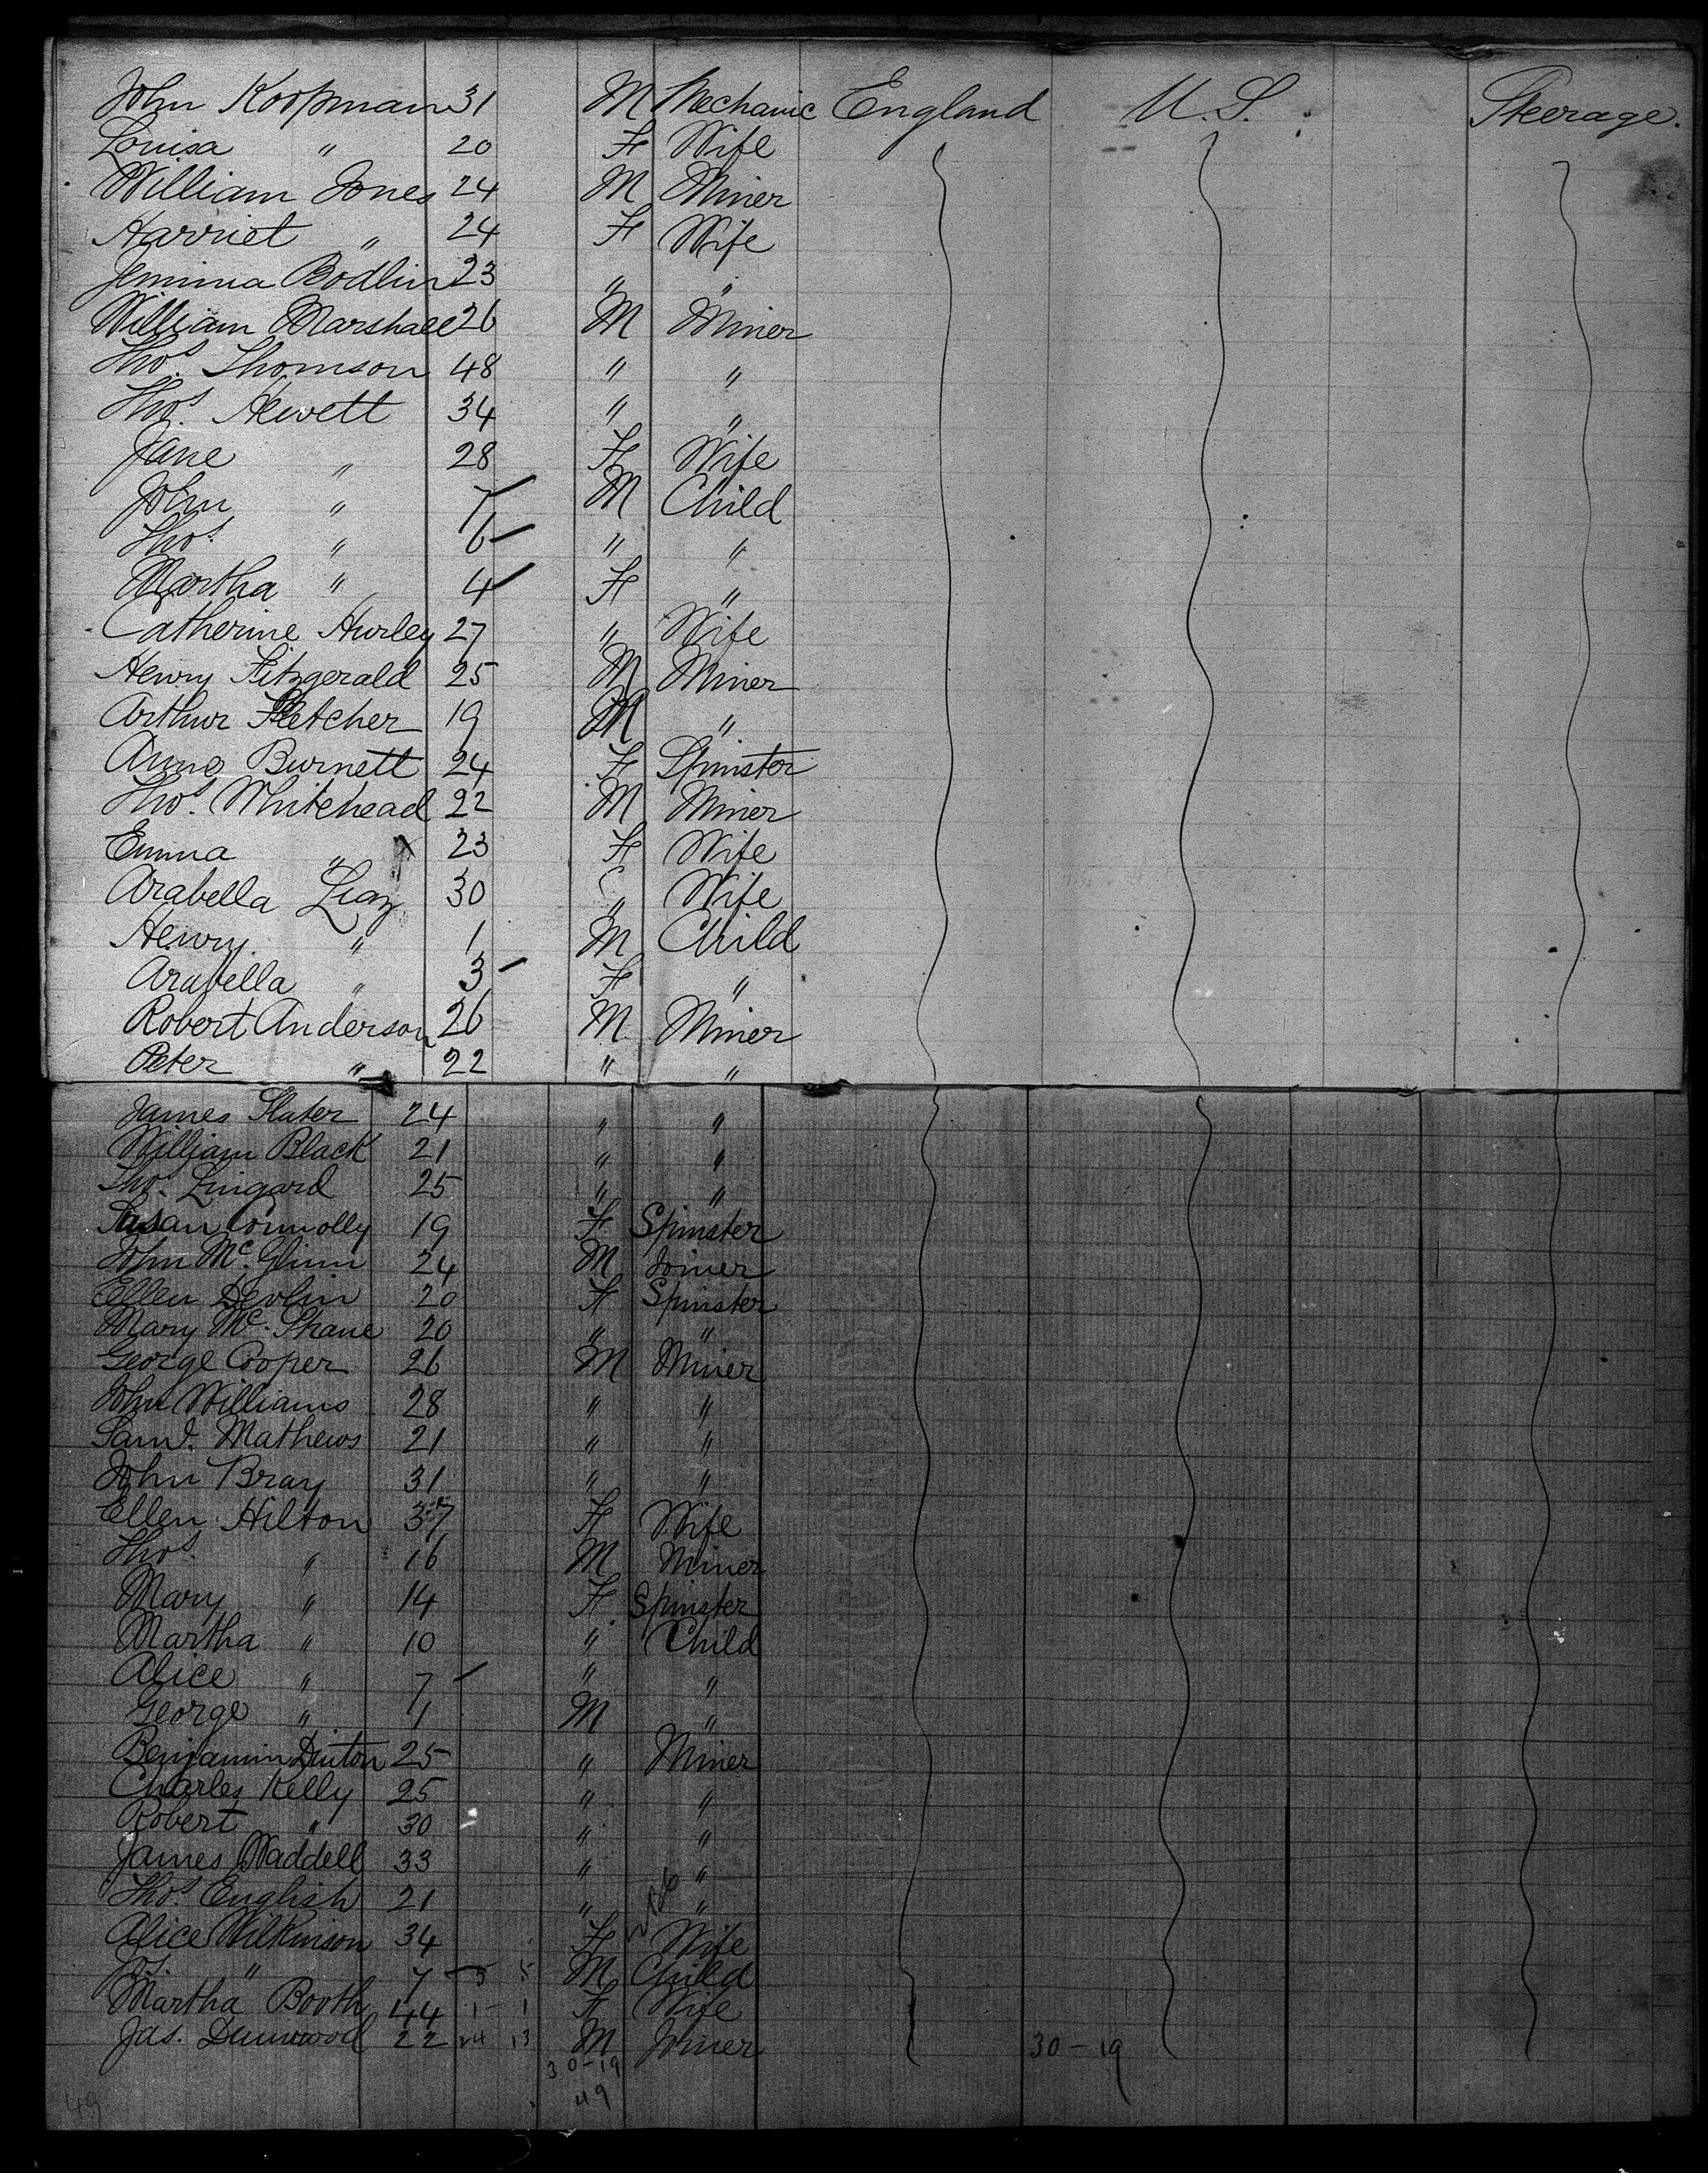 John Koopman 31 M Mechanic England U.S. Steerage.
Louisa " 20 F Wife
William Jones 24 M Miner
Harriet " 24 F Wife
Jemima Bodlin 23 " "
William Marshall 26 M Miner
Thos. Thomson 48 " "
Thos. Hewett 34 " "
Jane " 28 F Wife
John " 7 M Child
Thos. " 6 " "
Martha " 4 F "
Catherine Hurley 27 " Wife
Henry Fitzgerald 25 M Miner
Arthur Fletcher 19 M "
Burnett 24 F Spinster
Thos. Whitehead 22 M Miner
Emma " 23 F Wife
Arabella 30 " Wife
Henry " 1 M Child
Arabella " 3 F "
Robert Anderson 26 M Miner
Peter " 22 " "
James Slater 24 " "
William Black 21 " "
Thos. Lingard 25 " "
Susan Connolly 19 F Spinster
John Mc. Glinn 24 M Joiner
Ellen Devlin 20 F Spinster
Mary Mc. Shane 20 " "
George Cooper 26 M Miner
John Williams 28 " "
Saml. Mathews 21 " "
John Bray 31 " "
Ellen Hilton 37 F Wife
Thos. " 16 M Miner
Mary " 14 F Spinster
Martha " 10 " Child
Alice " 7 " "
George " 1 M "
Benjamin 25 " Miner
Charles Kelly 25 " "
Robert " 30 " "
James Waddell 33 " "
Thos. English 21 " "
Alice Wilkinson 34 F Wife
" 7 5 5 M Child
Martha Booth 44 1 - 1 F Wife
Jas. Dunwood 22 24 13 M Joiner
30-19 30-19
49
49